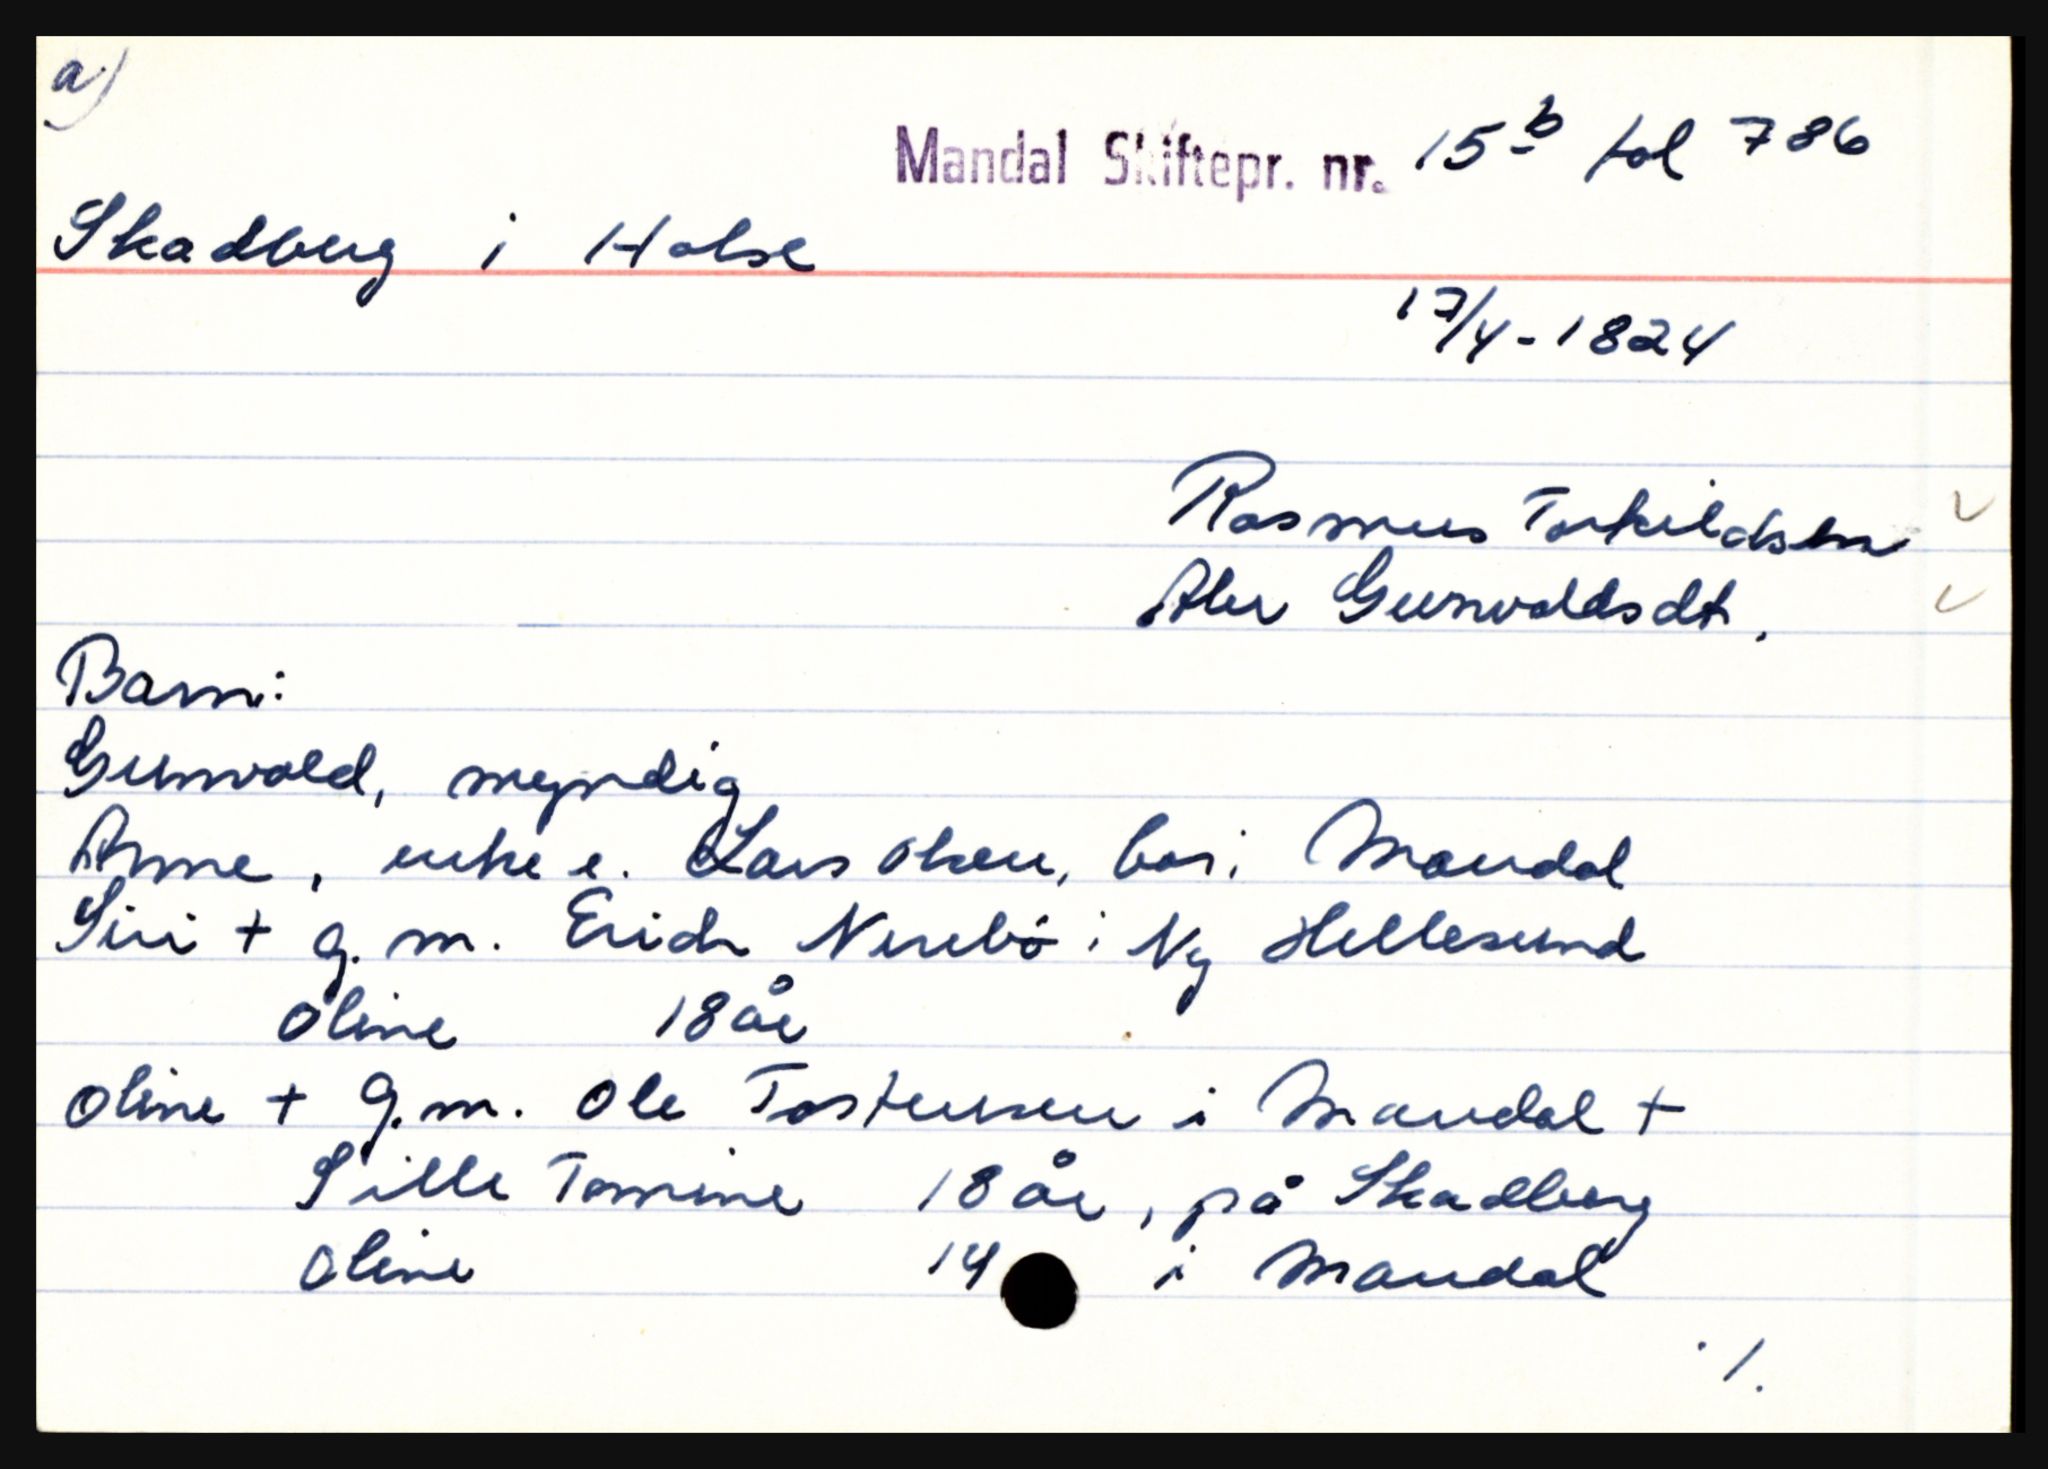 a)
Mandal Skiftepr. nr. 15b fol 786
Skadberg i Halse
17/4-1824
Rasmus Torkildsen ✓
Aler Gunvaldsdt. ✓
Barn:
Gunvald, myndig
Anne, enke e. Lars Olsen, bor i Mandal
Siri + g. m. Erich Nerebø i Ny Hellesund
Oline 18 år
Oline + g. m. Ole Tostensen i Mandal +
Sille Tomine 18 år, på Skadberg
Oline 14 i Mandal
./.